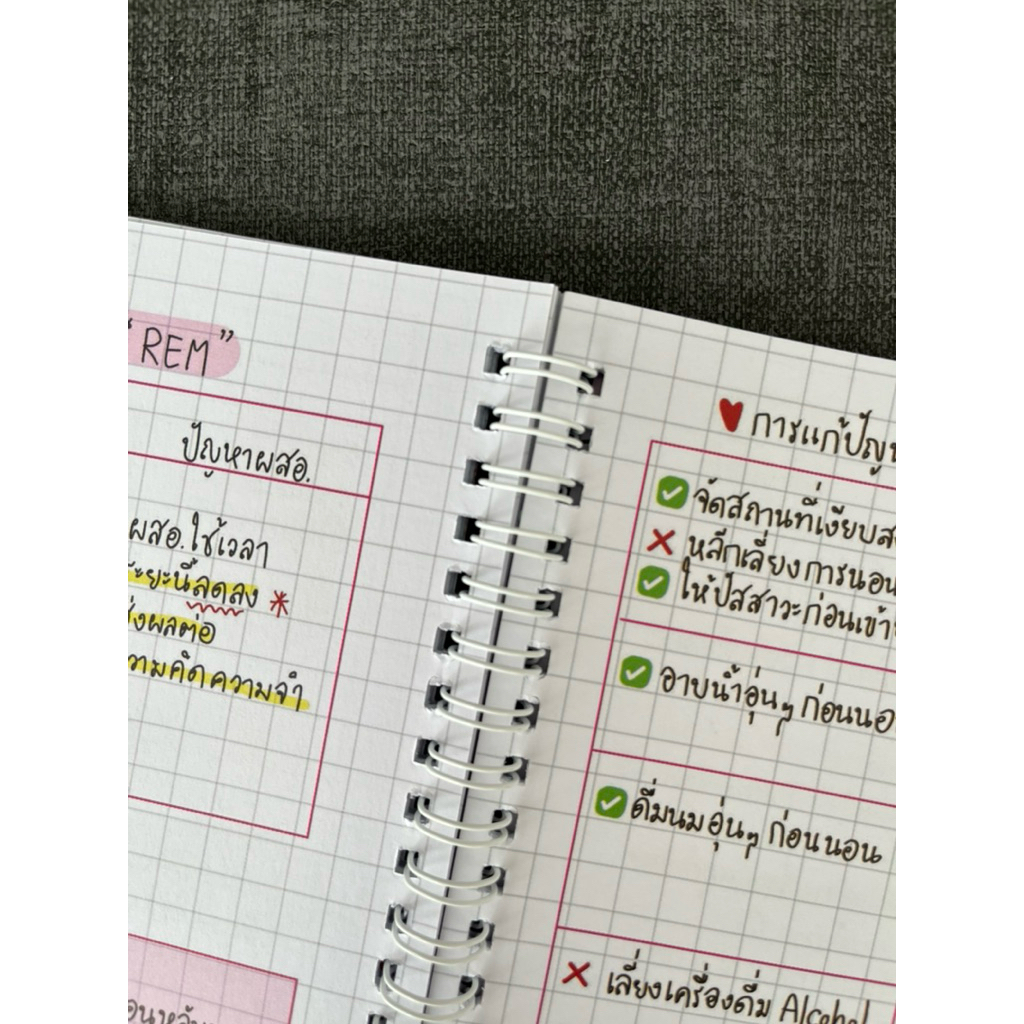 "REM"
ปัญหาผสอ.
ผสอ.ใช้เวลา
ระยะนี้ลดลง *
ส่งผลต่อ
ความคิดความจำ
การแก้ปัญห
จัดสถานที่เงียบส
หลีกเลี่ยงการนอน
ให้ปัสสาวะก่อนเข้า
อาบน้ำอุ่นๆ ก่อนนอ
ดื่มนมอุ่นๆ ก่อนนอน
เลี่ยงเครื่องดื่ม Alcohol